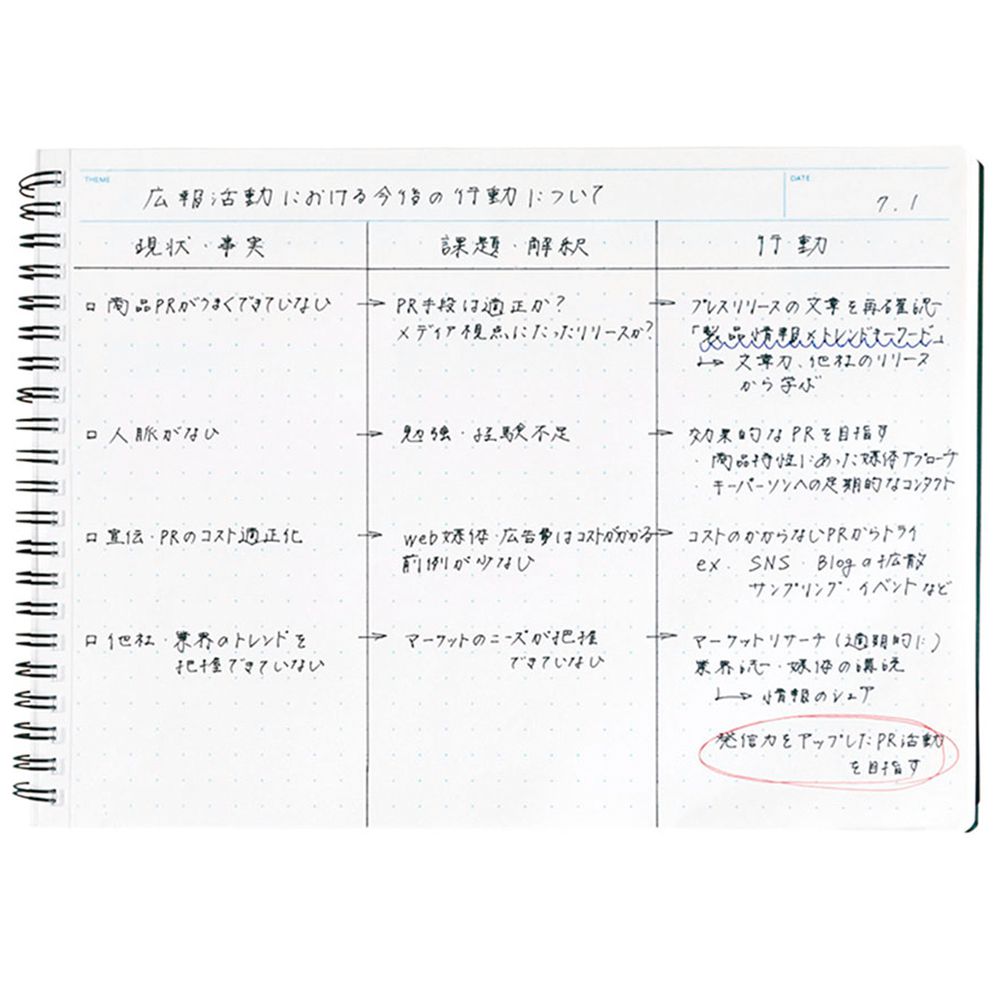 THEME
広報活動における今後の行動について
DATE
7.1
現状・事実
課題・解釈
行動
□ 商品PRがうまくできていない
→ PR手段は適正か?
メディア視点にたったリリースか?
→ プレスリリースの文章を再確認
「製品情報×トレンドキーワード」
↳ 文章力、他社のリリース
から学ぶ
□ 人脈がない
→ 勉強・経験不足
→ 効果的なPRを目指す
・商品特性にあった媒体アプローチ
・キーパーソンへの定期的なコンタクト
□ 宣伝・PRのコスト適正化
→ web媒体・広告費はコストがかかる
前例が少ない
→ コストのかからないPRからトライ
ex. SNS・Blogの拡散
サンプリング・イベントなど
□ 他社・業界のトレンドを
把握できていない
→ マーケットのニーズが把握
できていない
→ マーケットリサーチ(週期的に)
業界誌・媒体の購読
↳ 情報のシェア
発信力をアップしたPR活動
を目指す